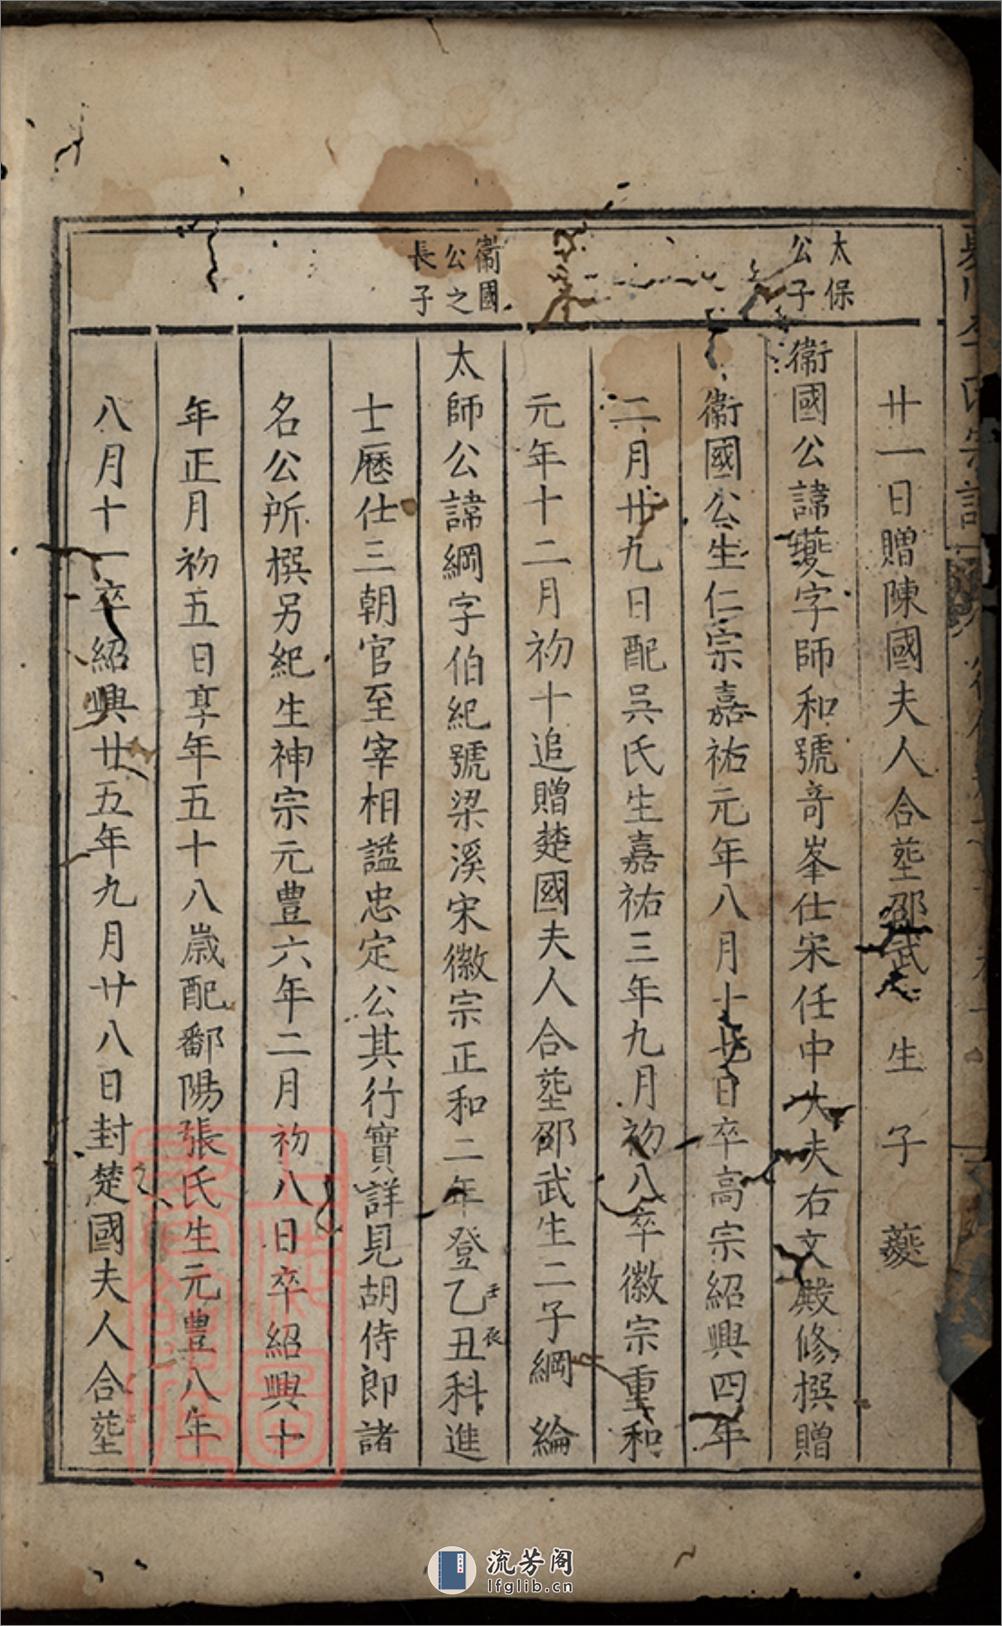 太保
公子
衞國
公之
長子
廿一日贈陳國夫人合塟邵武生子夔
衞國公諱夔字師和號竒峯仕宋任中大夫右文殿修撰贈
衞國公生仁宗嘉祐元年八月十七日卒高宗紹興四年
二月廿九日配吳氏生嘉祐三年九月初八卒徽宗重和
元年十二月初十追贈楚國夫人合塟邵武生二子綱綸
太師公諱綱字伯紀號梁溪宋徽宗正和二年登乙丑科進
壬辰
士歷仕三朝官至宰相謚忠定公其行實詳見胡侍郎諸
名公所撰另紀生神宗元豊六年二月初八日卒紹興十
年正月初五日享年五十八歲配鄱陽張氏生元豊八年
八月十一卒紹興廿五年九月廿八日封楚國夫人合塟
上海圖
書館藏
流芳阁
lfglib.cn